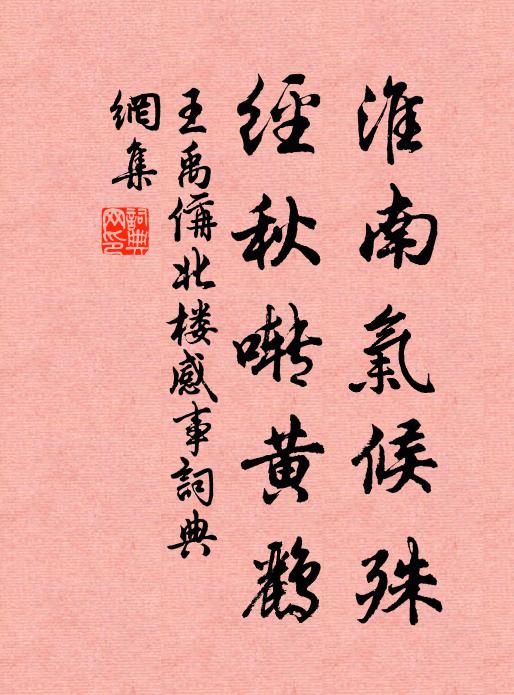 淮南氣候殊
經秋囀黄鸝
王禹偁北楼感事詞典
網集
詞典網印